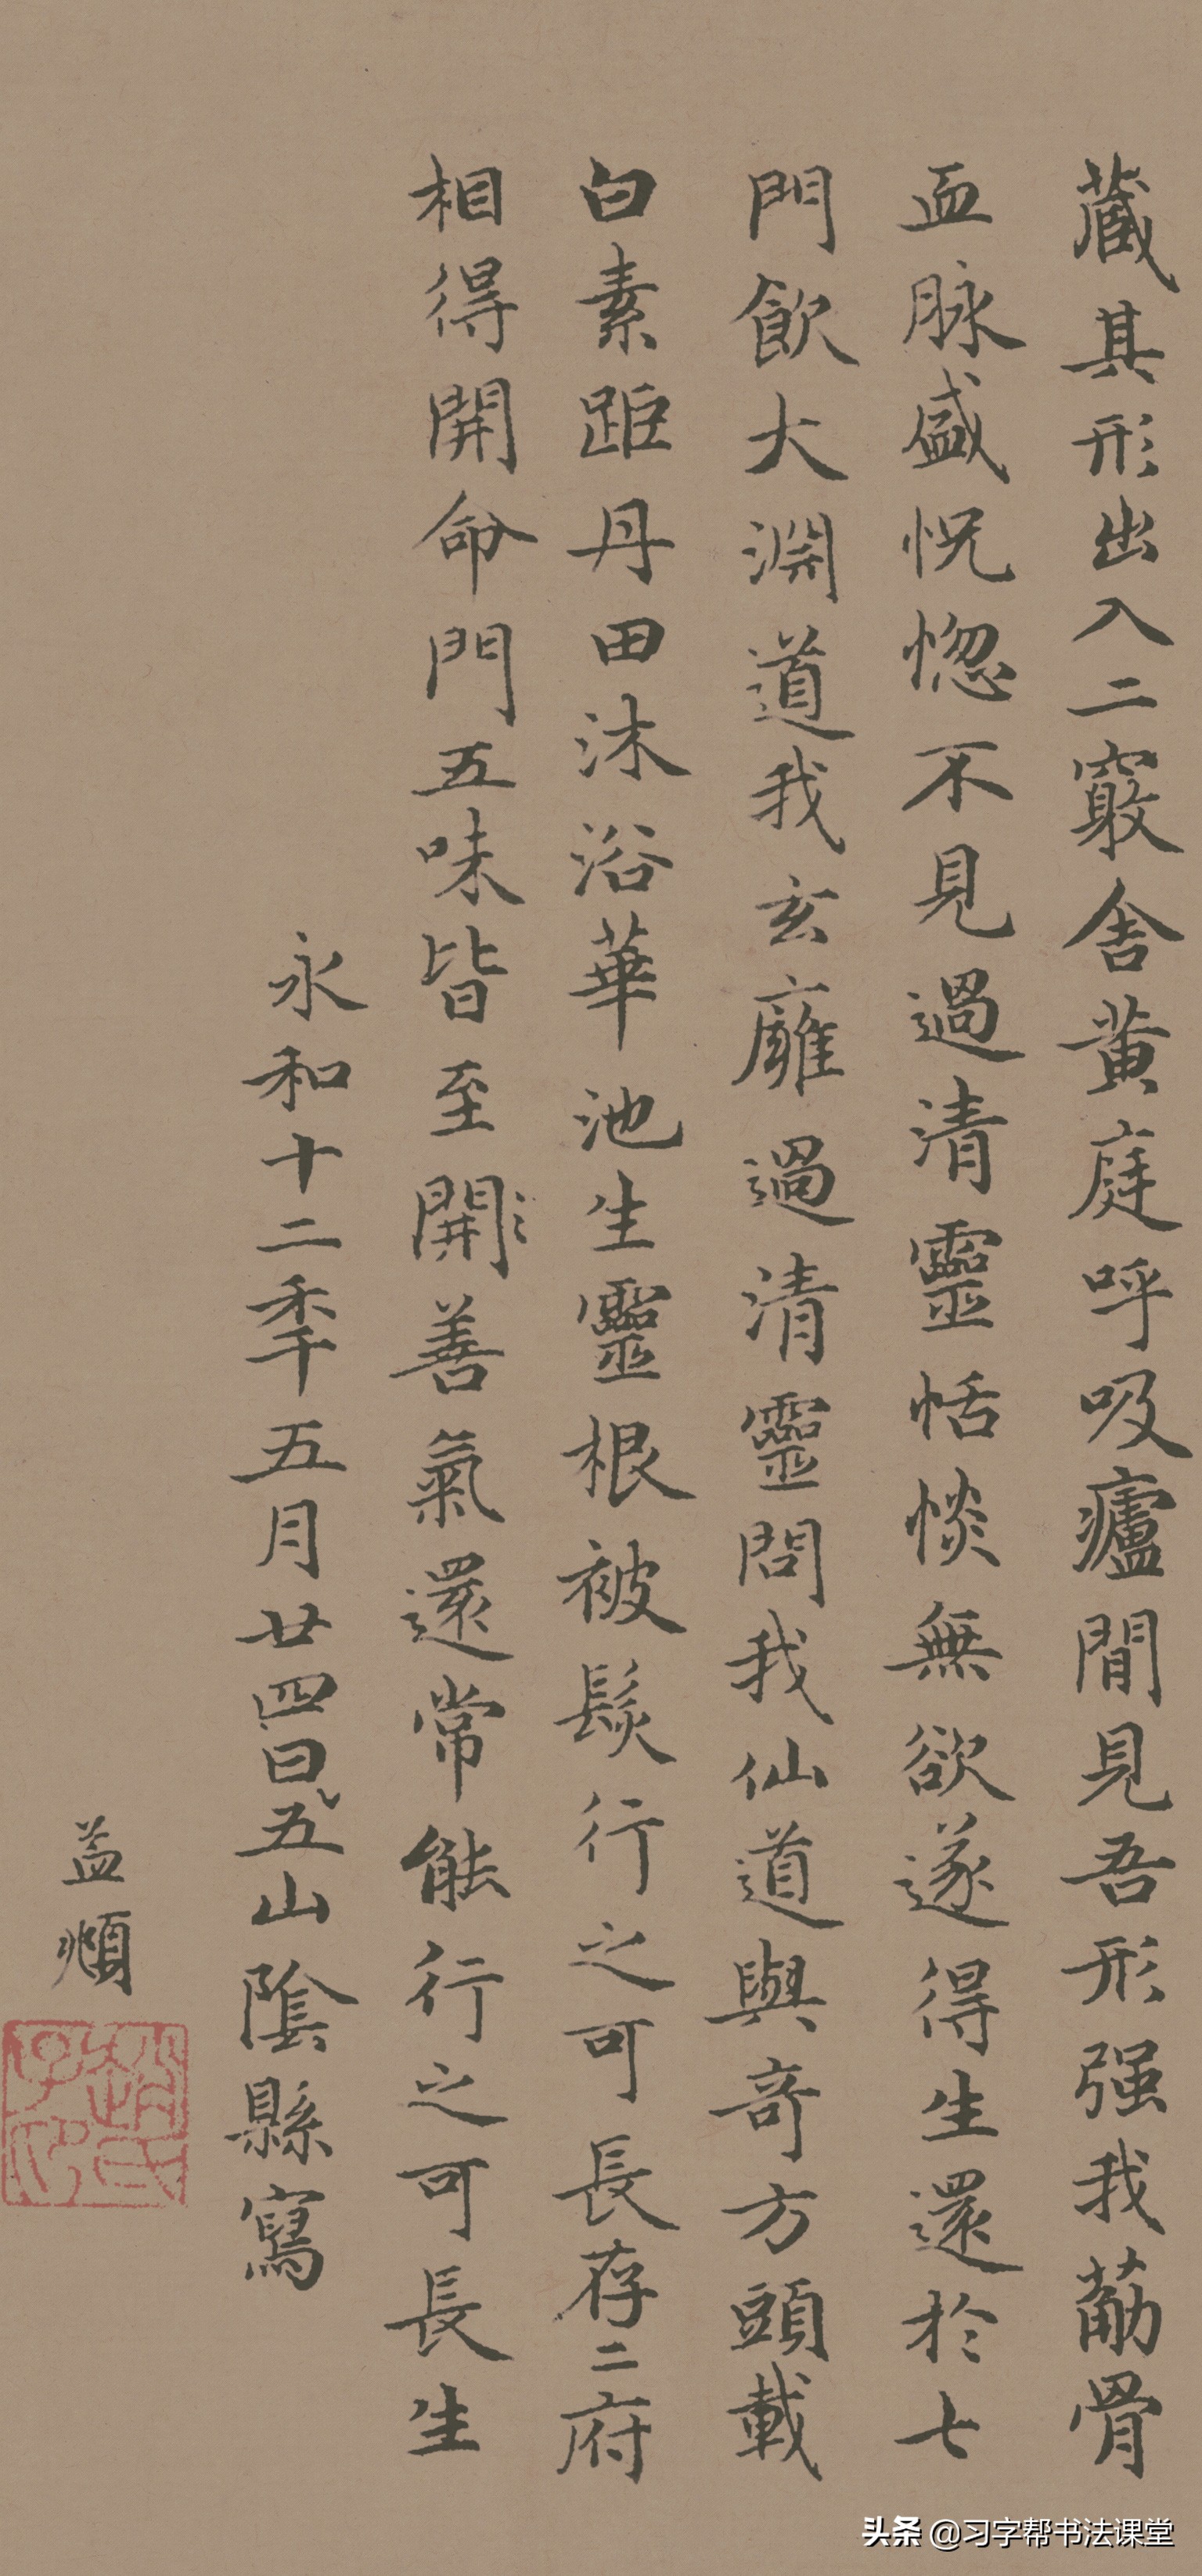 藏其形出入二竅舍黃庭呼吸廬閒見吾形强我葝骨
血脉盛怳惚不見過清靈恬惔無欲遂得生還於七
門飲大淵道我玄廱過清靈問我仙道與奇方頭載
白素距丹田沐浴華池生靈根被髮行之可長存二府
相得開命門五味皆至開善氣還常能行之可長生
永和十二年五月廿四日五山陰縣寫
頭条 @习字帮书法课堂